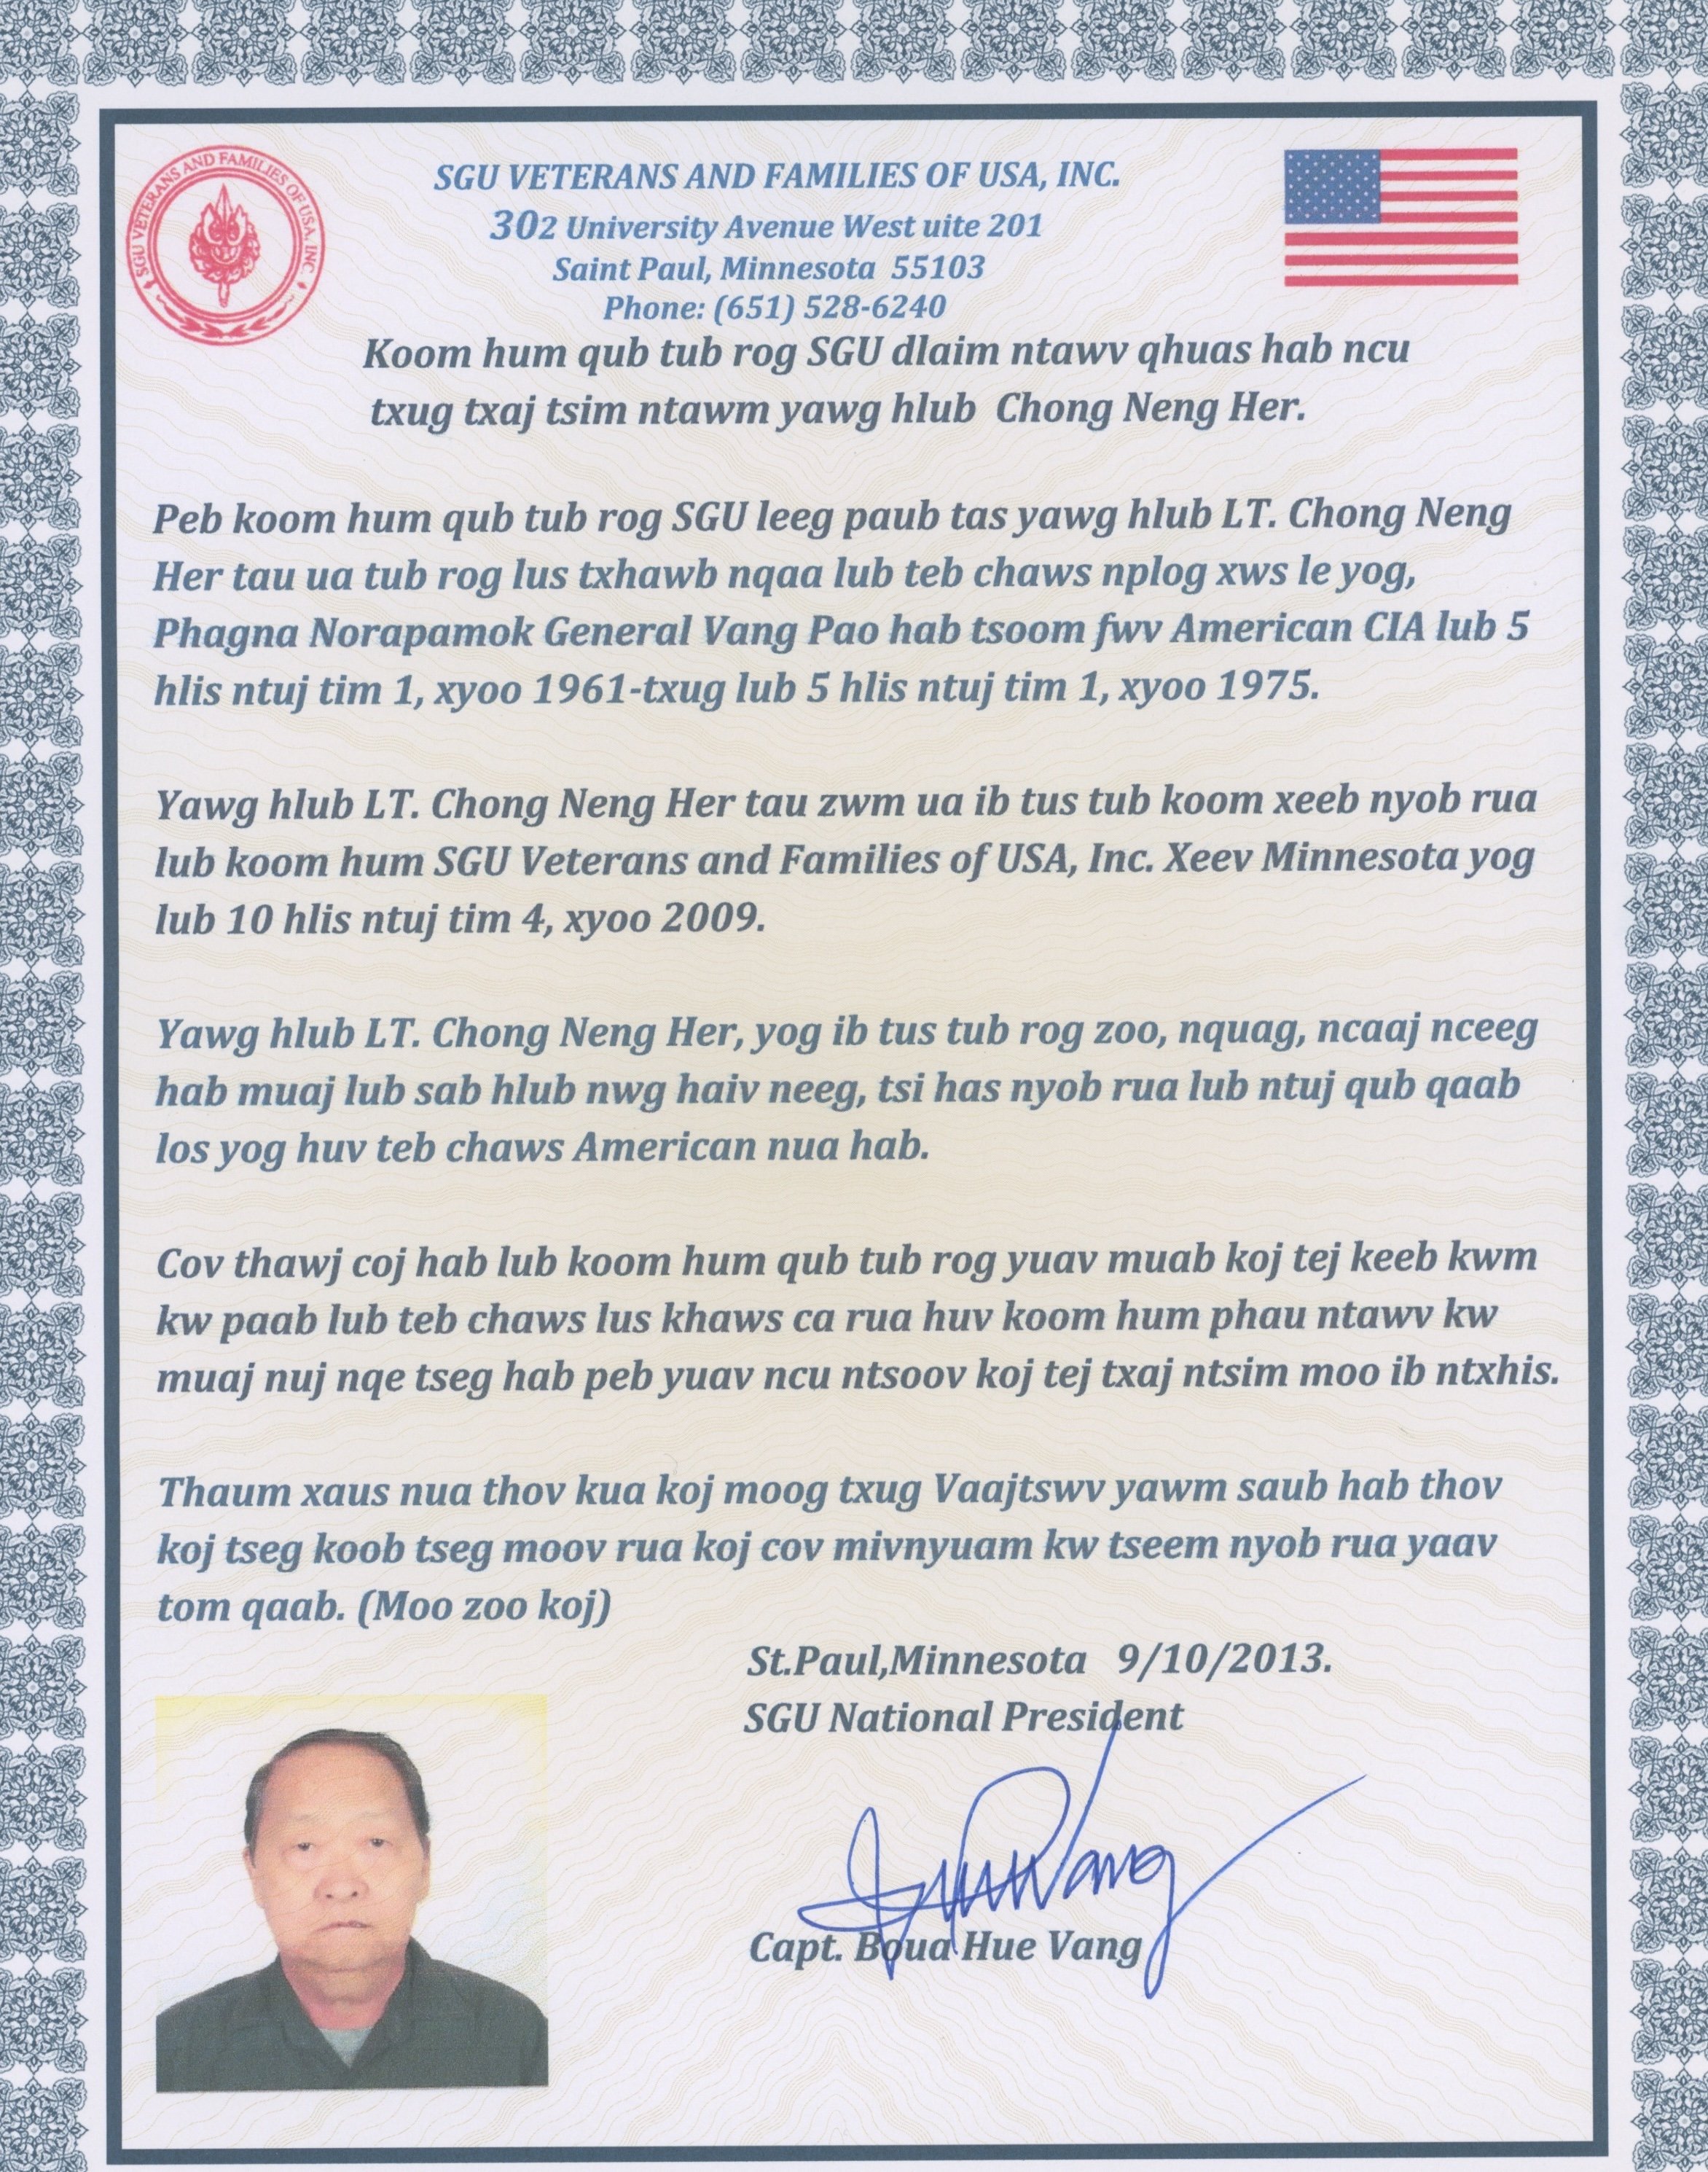 SGU VETERANS AND FAMILIES OF USA, INC.
SGU VETERANS AND FAMILIES OF USA, INC.
302 University Avenue West uite 201
Saint Paul, Minnesota 55103
Phone: (651) 528-6240
Koom hum qub tub rog SGU dlaim ntawv qhuas hab ncu
txug txaj tsim ntawm yawg hlub Chong Neng Her.
Peb koom hum qub tub rog SGU leeg paub tas yawg hlub LT. Chong Neng
Her tau ua tub rog lus txhawb nqaa lub teb chaws nplog xws le yog,
Phagna Norapamok General Vang Pao hab tsoom fwv American CIA lub 5
hlis ntuj tim 1, xyoo 1961-txug lub 5 hlis ntuj tim 1, xyoo 1975.
Yawg hlub LT. Chong Neng Her tau zwm ua ib tus tub koom xeeb nyob rua
lub koom hum SGU Veterans and Families of USA, Inc. Xeev Minnesota yog
lub 10 hlis ntuj tim 4, xyoo 2009.
Yawg hlub LT. Chong Neng Her, yog ib tus tub rog zoo, nquag, ncaaj nceeg
hab muaj lub sab hlub nwg haiv neeg, tsi has nyob rua lub ntuj qub qaab
los yog huv teb chaws American nua hab.
Cov thawj coj hab lub koom hum qub tub rog yuav muab koj tej keeb kwm
kw paab lub teb chaws lus khaws ca rua huv koom hum phau ntawv kw
muaj nuj nqe tseg hab peb yuav ncu ntsoov koj tej txaj ntsim moo ib ntxhis.
Thaum xaus nua thov kua koj moog txug Vaajtswv yawm saub hab thov
koj tseg koob tseg moov rua koj cov mivnyuam kw tseem nyob rua yaav
tom qaab. (Moo zoo koj)
St.Paul,Minnesota 9/10/2013.
SGU National President
Capt. Boua Hue Vang